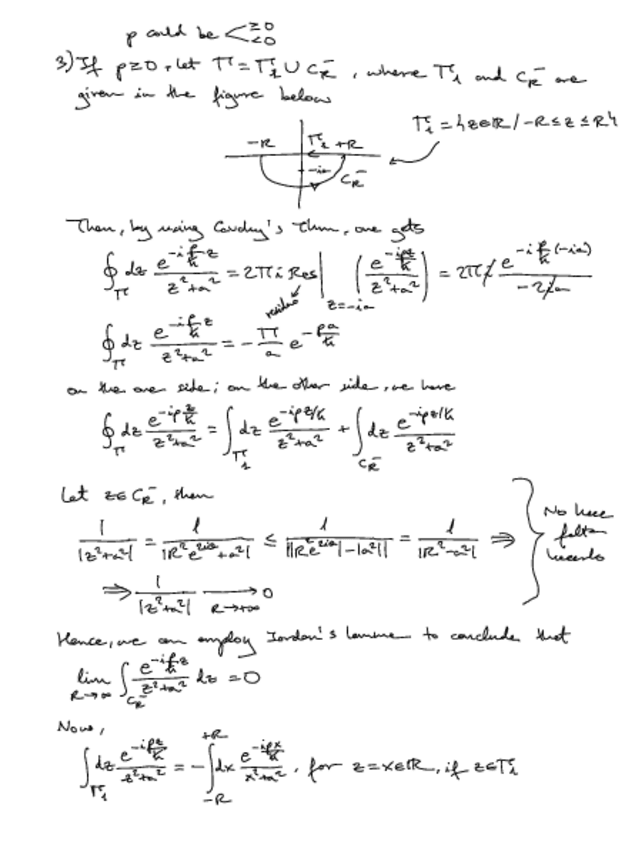 p could be < ≥0
<0
3) If p≥0, let Γ = Γ₁ ∪ C_R⁻, where Γ₁ and C_R⁻ are
given in the figure below
Γ₁ = {z∈ℝ / -R ≤ z ≤ R}
-R Γ₁ +R
-ia
C_R⁻
Then, by using Cauchy's Thm, one gets
∮_Γ dz e^{-i(p/ħ)z}/(z²+a²) = 2πi Res|_{z=-ia} (e^{-ipz/ħ}/(z²+a²)) = 2πi e^{-i(p/ħ)(-ia)}/(-2ia)
residue
∮_Γ dz e^{-i(p/ħ)z}/(z²+a²) = -(π/a) e^{-pa/ħ}
on the one side; on the other side, we have
∮_Γ dz e^{-ipz/ħ}/(z²+a²) = ∫_{Γ₁} dz e^{-ipz/ħ}/(z²+a²) + ∫_{C_R⁻} dz e^{-ipz/ħ}/(z²+a²)
Let z∈C_R⁻, then
1/|z²+a²| = 1/|R²e^{2iα}+a²| ≤ 1/||R²e^{2iα}|-|a²|| = 1/|R²-a²| ⟹
No hace
falta
hacerlo
⟹ 1/|z²+a²| ⟶ 0
R→+∞
Hence, we can employ Jordan's lemma to conclude that
lim_{R→∞} ∫_{C_R⁻} e^{-i(p/ħ)z}/(z²+a²) dz = 0
Now,
∫_{Γ₁} dz e^{-ipz/ħ}/(z²+a²) = -∫_{-R}^{+R} dx e^{-ipx/ħ}/(x²+a²), for z=x∈ℝ, if z∈Γ₁